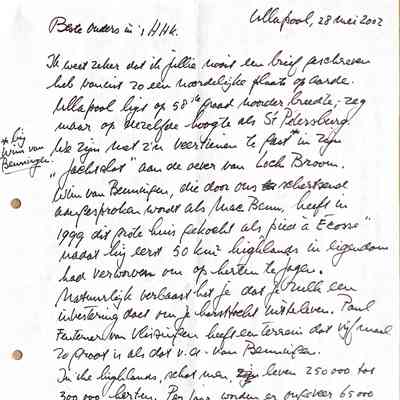 Ullapool, 28 mei 2002
Beste ouders in 't HHK.
Ik weet zeker dat ik jullie nooit een brief geschreven
heb vanuit zo een noordelijke plaats op aarde.
Ullapool ligt op 58ste graad noorder breedte, zeg
maar op dezelfde hoogte als St Petersburg.
We zijn met z'n veertienen te gast * in zijn
* bij
Wim van
Beuningen.
"jachtslot" aan de oever van Loch Broom.
Wim van Beuningen, die door ons schertsend
aangesproken wordt als Mac Benn, heeft in
1999 dit grote huis gekocht als "pied à Ecosse"
nadat hij eerst 50 km² highlands in eigendom
had verworven om op herten te jagen.
Natuurlijk verbaast het je dat je zulk een
investering doet om je harstocht uit te leven. Paul
Fentener van Vlissingen heeft een terrein dat vijf maal
zo groot is als dat v.a. van Beuningen.
In the highlands, schat men, leven 250 000 tot
300 000 herten. Per jaar worden er ongeveer 65 000